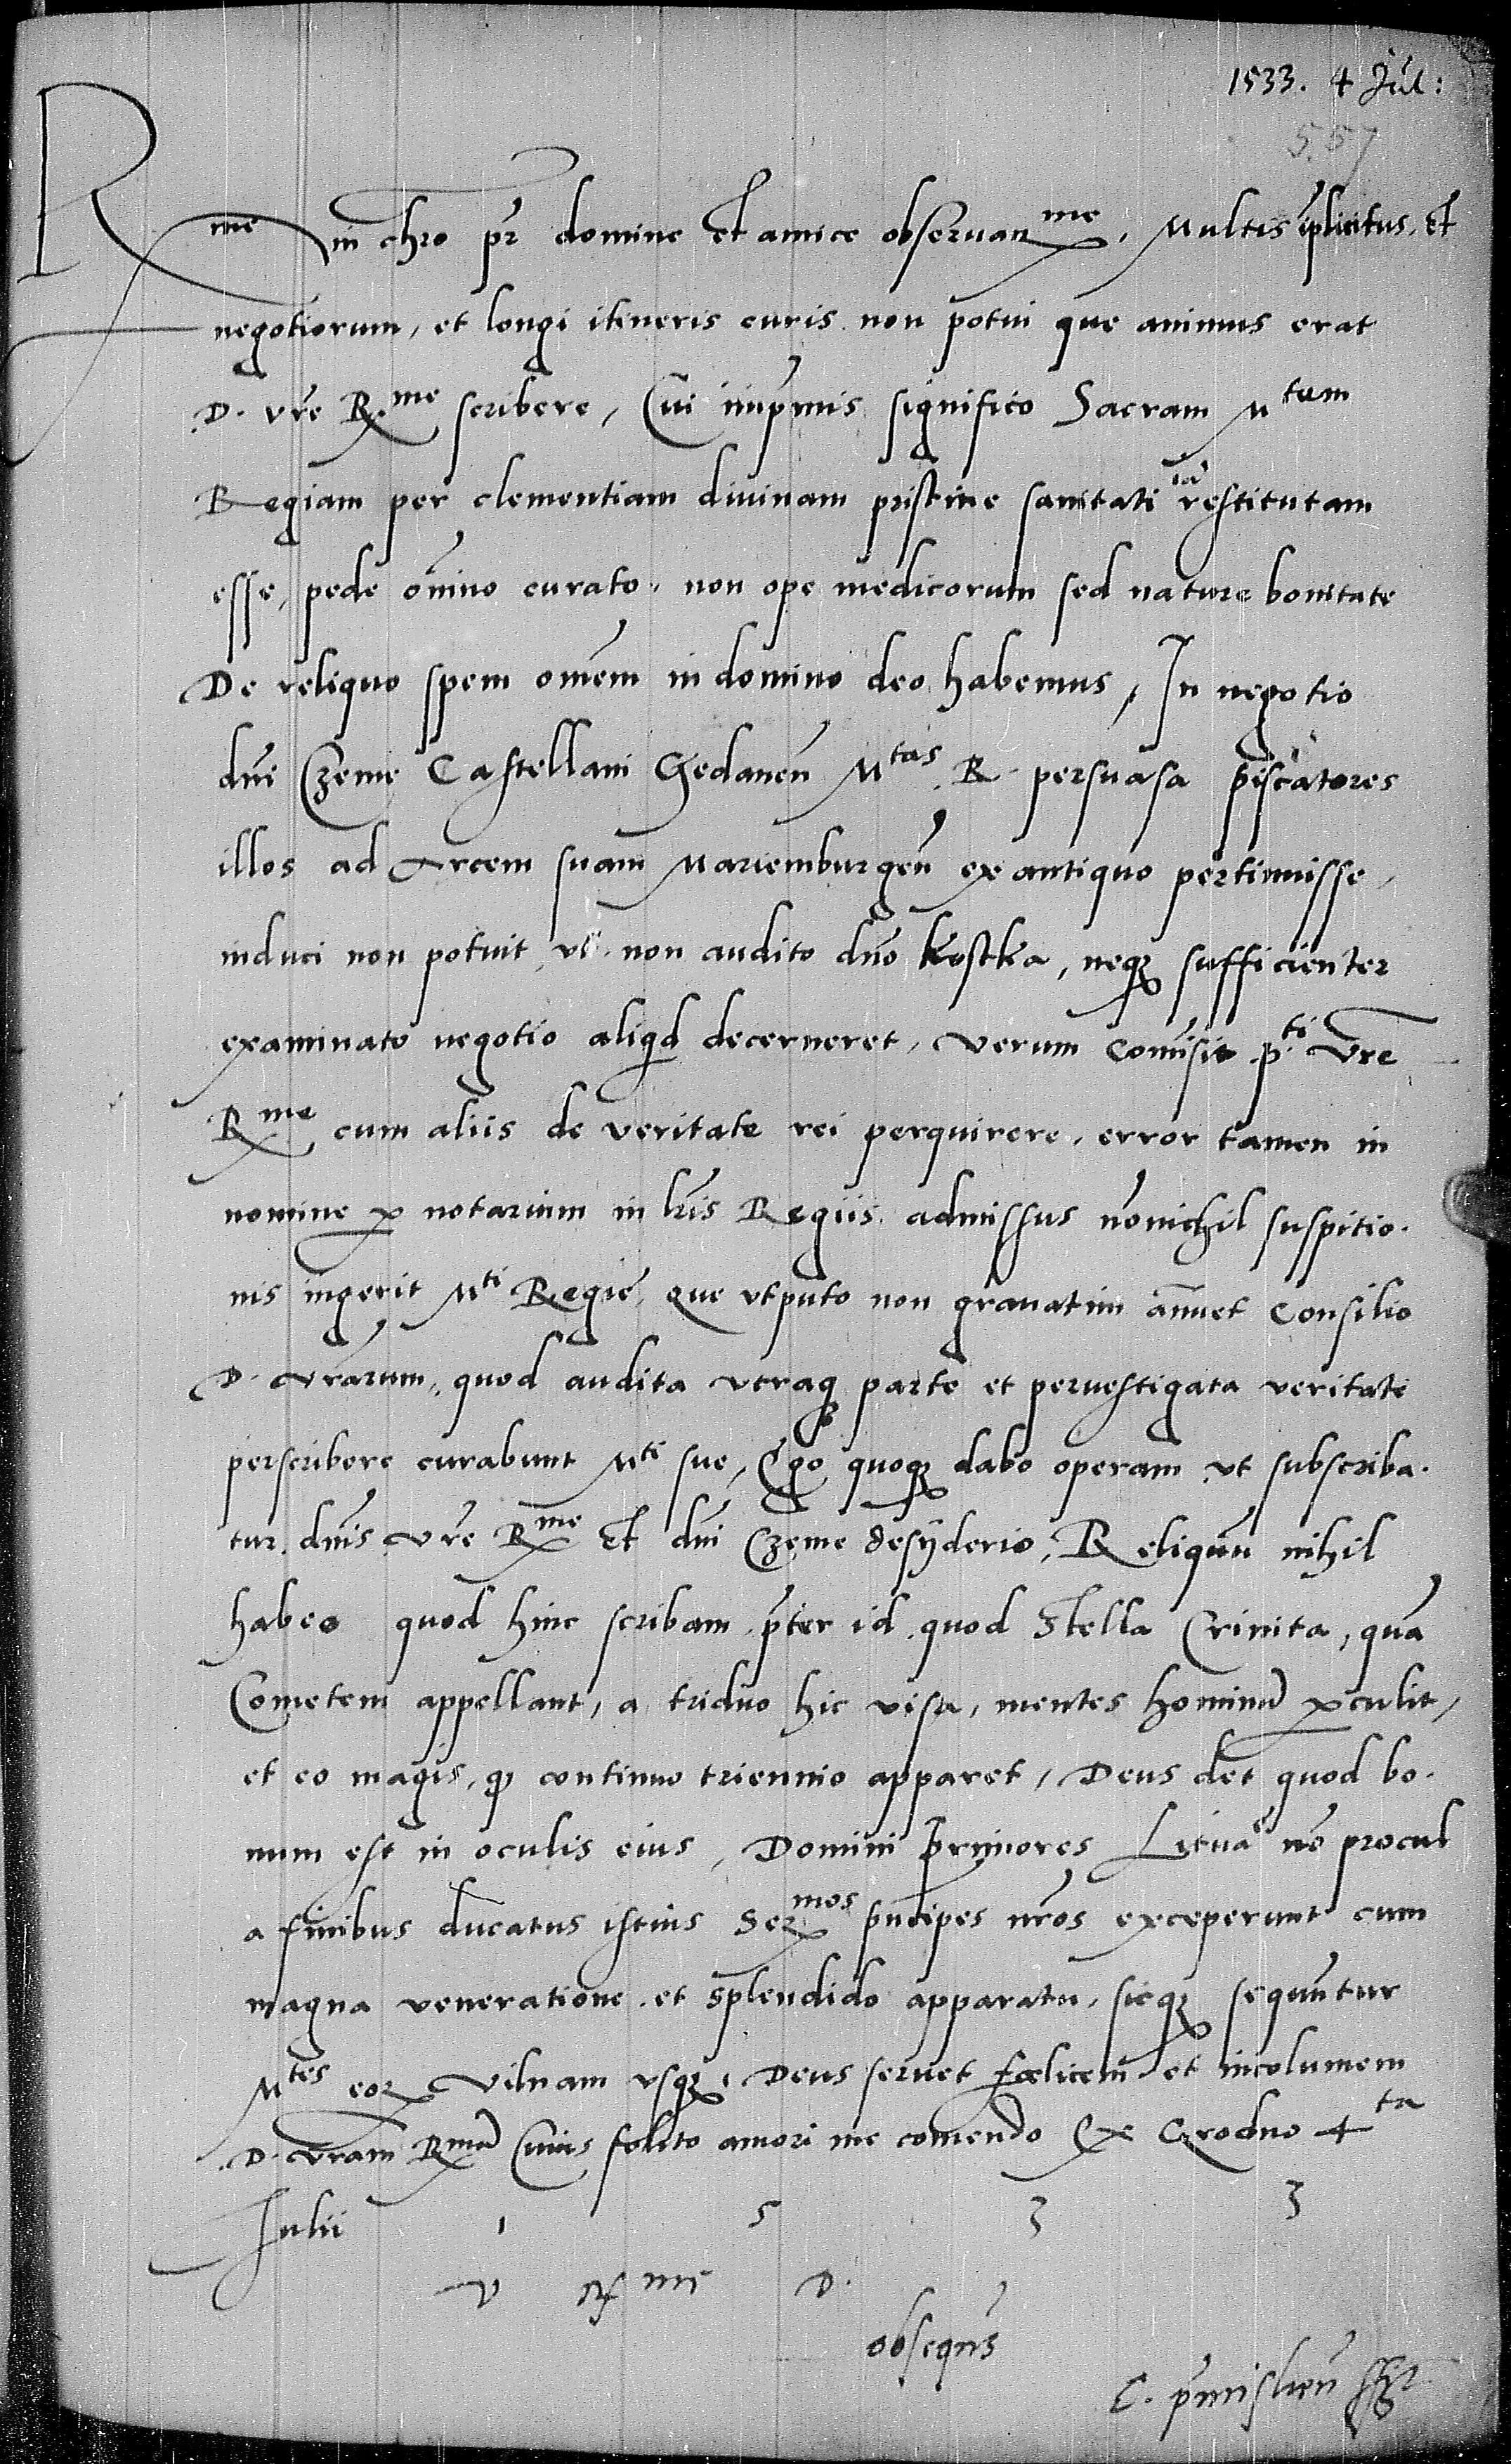 1533. 4 Jul:
557
Rme in chro pr domine et amice observanme, Multis iplicitus, et
negotiorum, et longi itineris curis non potui que animus erat
D. vre Rme scribere, Cui inprimis significo Sacram Mtem
Regiam per clementiam divinam pristine sanitati ia restitutam
esse, pede omino curato, non ope medicorum sed nature bonitate
De reliquo spem omem in domino deo habemus, In negotio
dni Czeme Castellani Gedanen Mtas R. persuasa piscatores
illos ad Arcem suam Mariemburgen ex antiquo pertinuisse,
induci non potuit, ut non audito dno Kostka, neq sufficienter
examinato negotio aliqd decerneret, verum comisit pti Vre
Rme cum aliis de veritate rei perquirere, error tamen in
nomine p notarium in lris Regiis admissus nonichil suspitio-
nis ingerit Mti Regie, que ut puto non gravatim annuet consilio
D. vrarum, quod audita utraq parte et pervestigata veritate
perscribere curabunt Mti sue, Ego quoq dabo operam ut subscriba-
tur dnis vre Rme et dni Czeme desyderio, Reliquu nihil
habeo quod hinc scribam, pter id quod Stella Crinita, qua
Cometem appellant, a triduo hic visa, mentes hominu pculit,
et eo magis, q continuo triennio apparet, Deus det quod bo-
num est in oculis eius, Domini primores Lituae no procul
a finibus ducatus istius Sermos pncipes nros exceperunt cum
magna veneratione et splendido apparatu, sicq sequuntur
Mtes eor Vilnam usq, Deus servet foelicem et incolumem
D. vram Rma Cuius solito amori me comendo Ex Grodno 4ta
Julii 1 5 3 3
V Rme D.
obseqns
E. pmislien sst